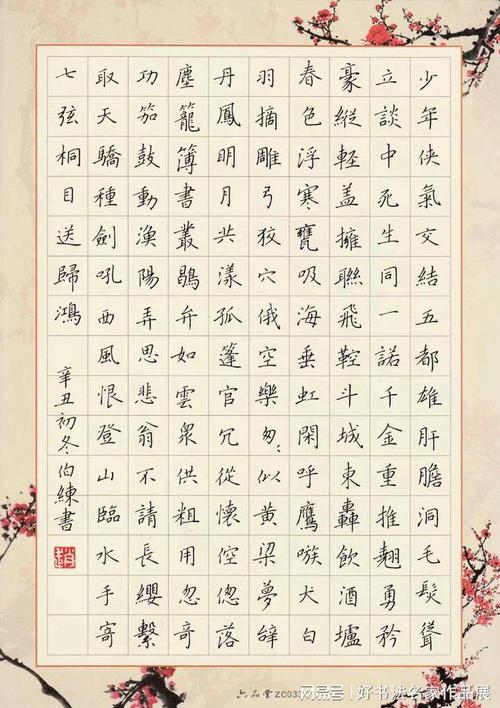 少年俠氣交結五都雄肝膽洞毛髮聳
立談中死生同一諾千金重推翹勇矜
豪縱輕蓋擁聯飛鞚斗城東轟飲酒壚
春色浮寒甕吸海垂虹閑呼鷹嗾犬白
羽摘雕弓狡穴俄空樂匆〻似黃梁夢辭
丹鳳明月共漾孤篷官冗從懷倥傯落
塵籠簿書叢鶡弁如雲衆供粗用忽奇
功笳鼓動漁陽弄思悲翁不請長纓繫
取天驕種劍吼西風恨登山臨水手寄
七弦桐目送歸鴻 辛丑初冬伯練書
趙
六品堂 ZC033
网易号 | 好书法名家作品展